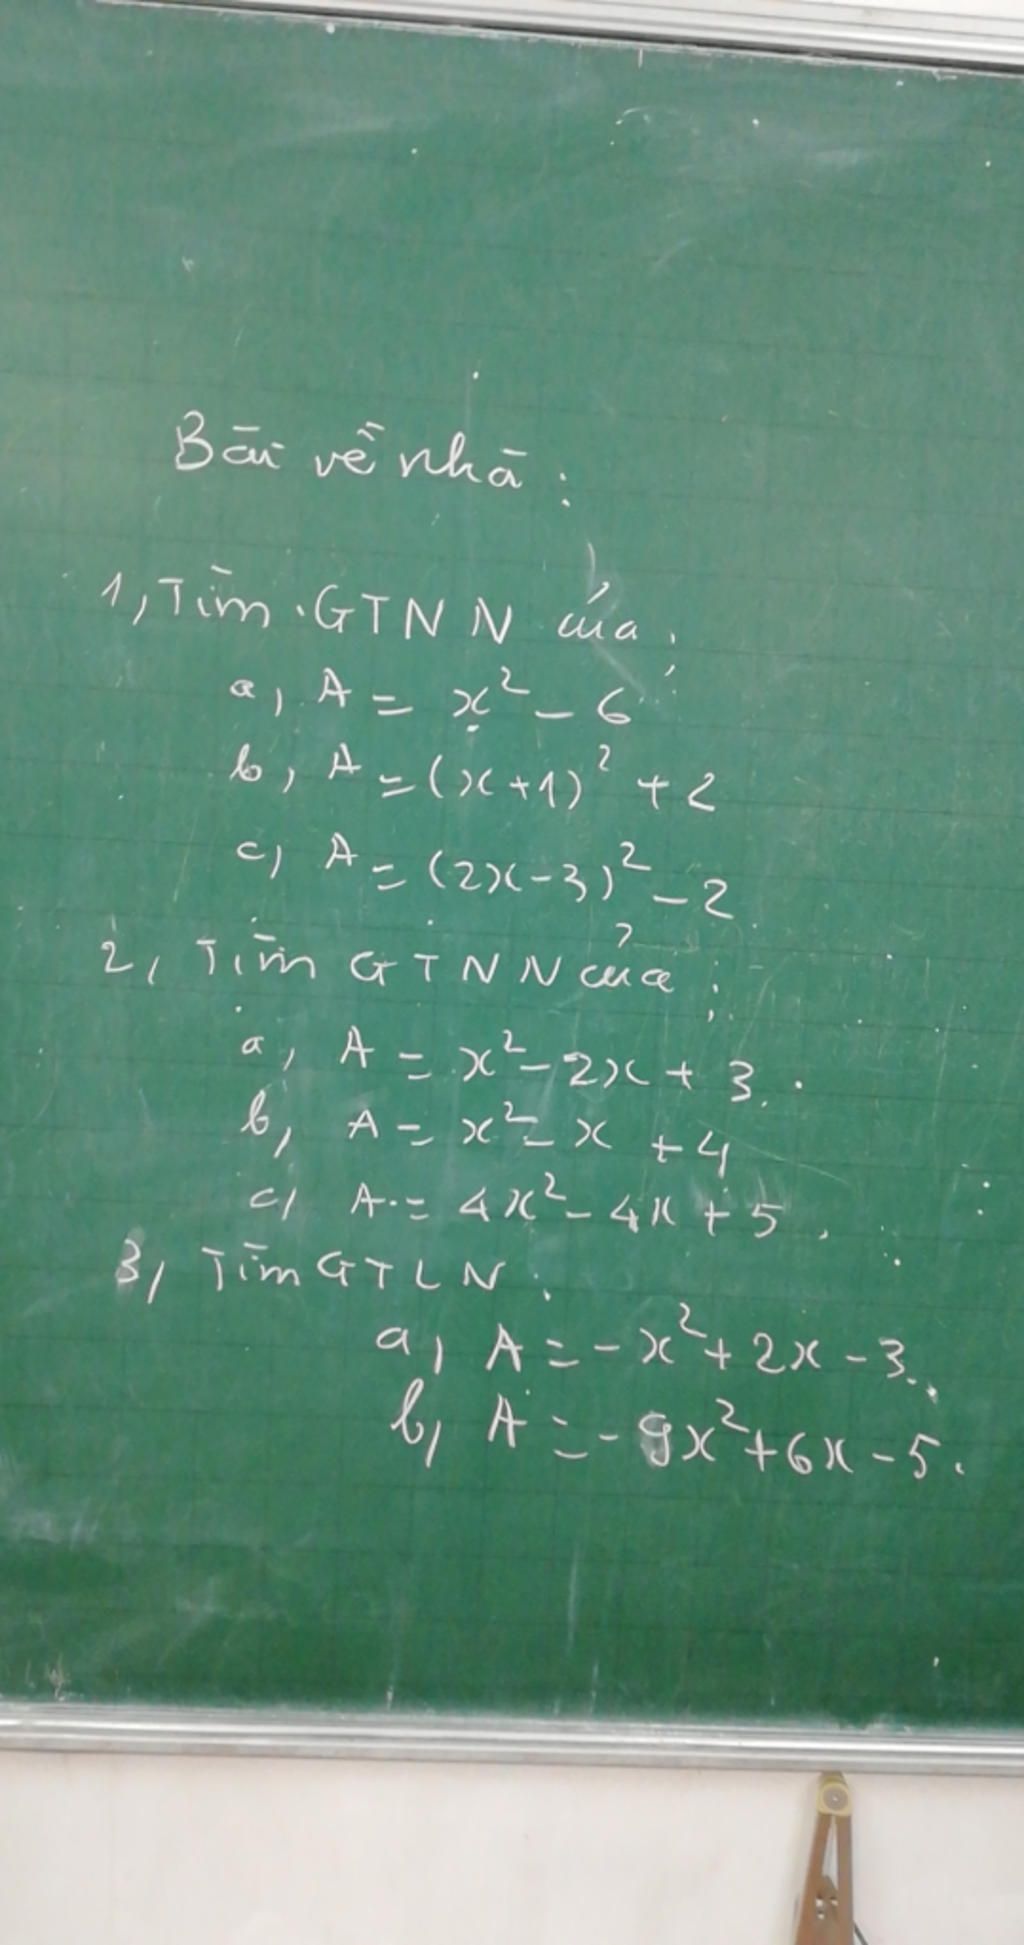 Bài về nhà:
1, Tìm GTNN của:
a, A = x² - 6
b, A = (x+1)² + 2
c, A = (2x-3)² - 2
2, Tìm GTNN của:
a, A = x² - 2x + 3.
b, A = x² - x + 4
c, A = 4x² - 4x + 5.
3, Tìm GTLN:
a, A = -x² + 2x - 3.
b, A = -9x² + 6x - 5.